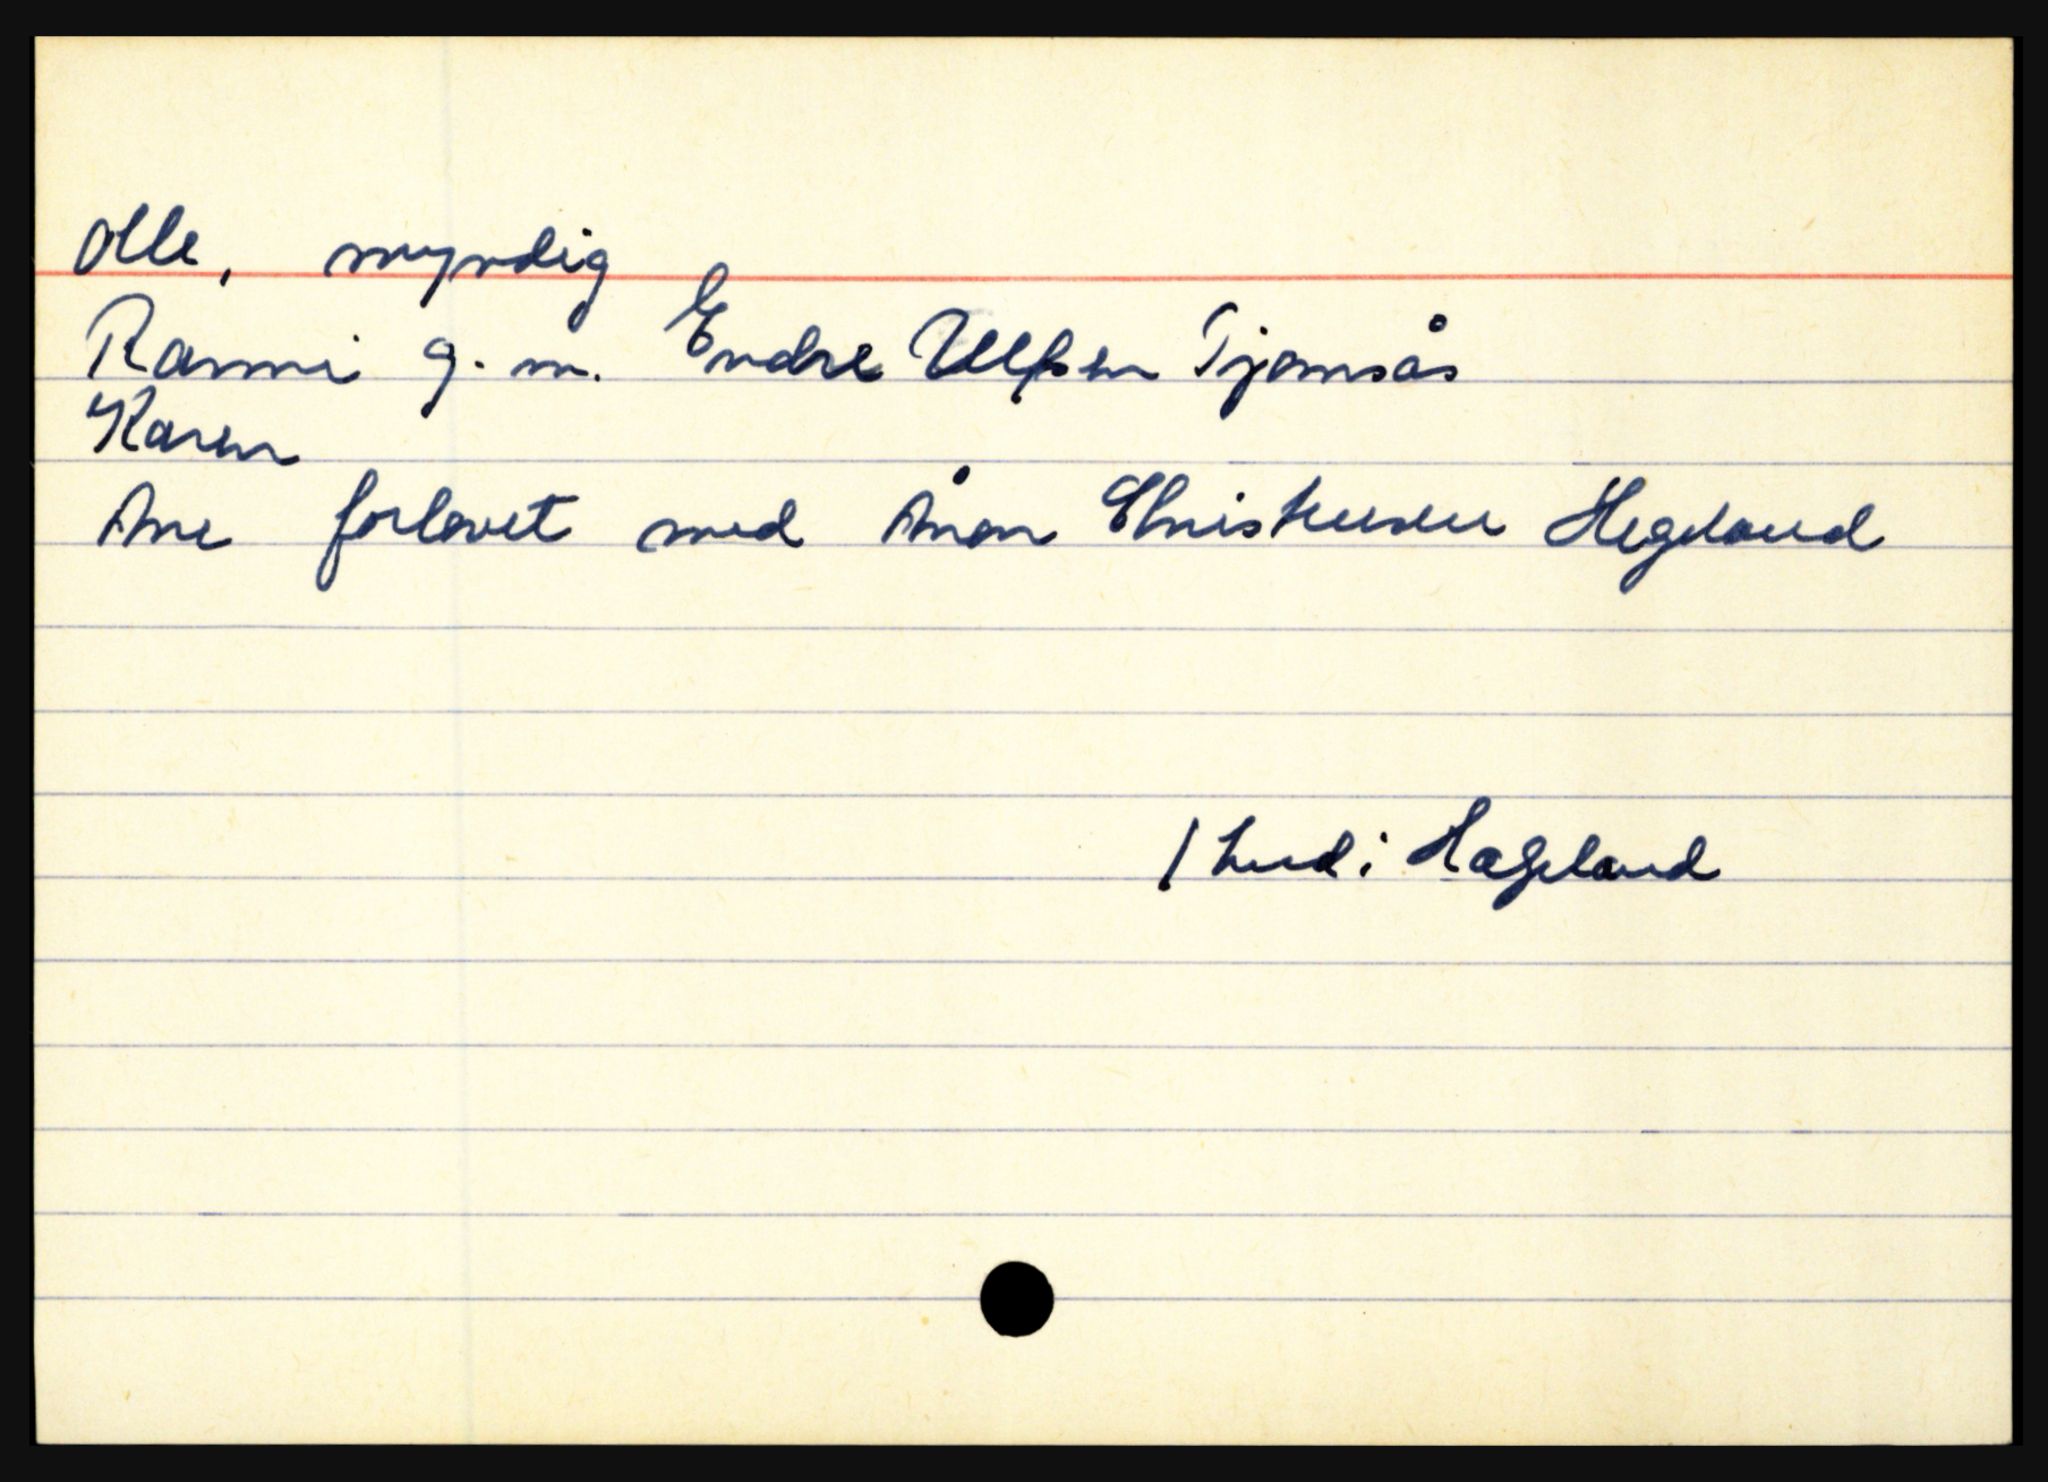 Olle, myndig
Ranni g. m. Endre Ulfsen Tjomsås
Karen
Ane forlovet med Ånen Christensen Hegeland
/ Lund i Hægeland